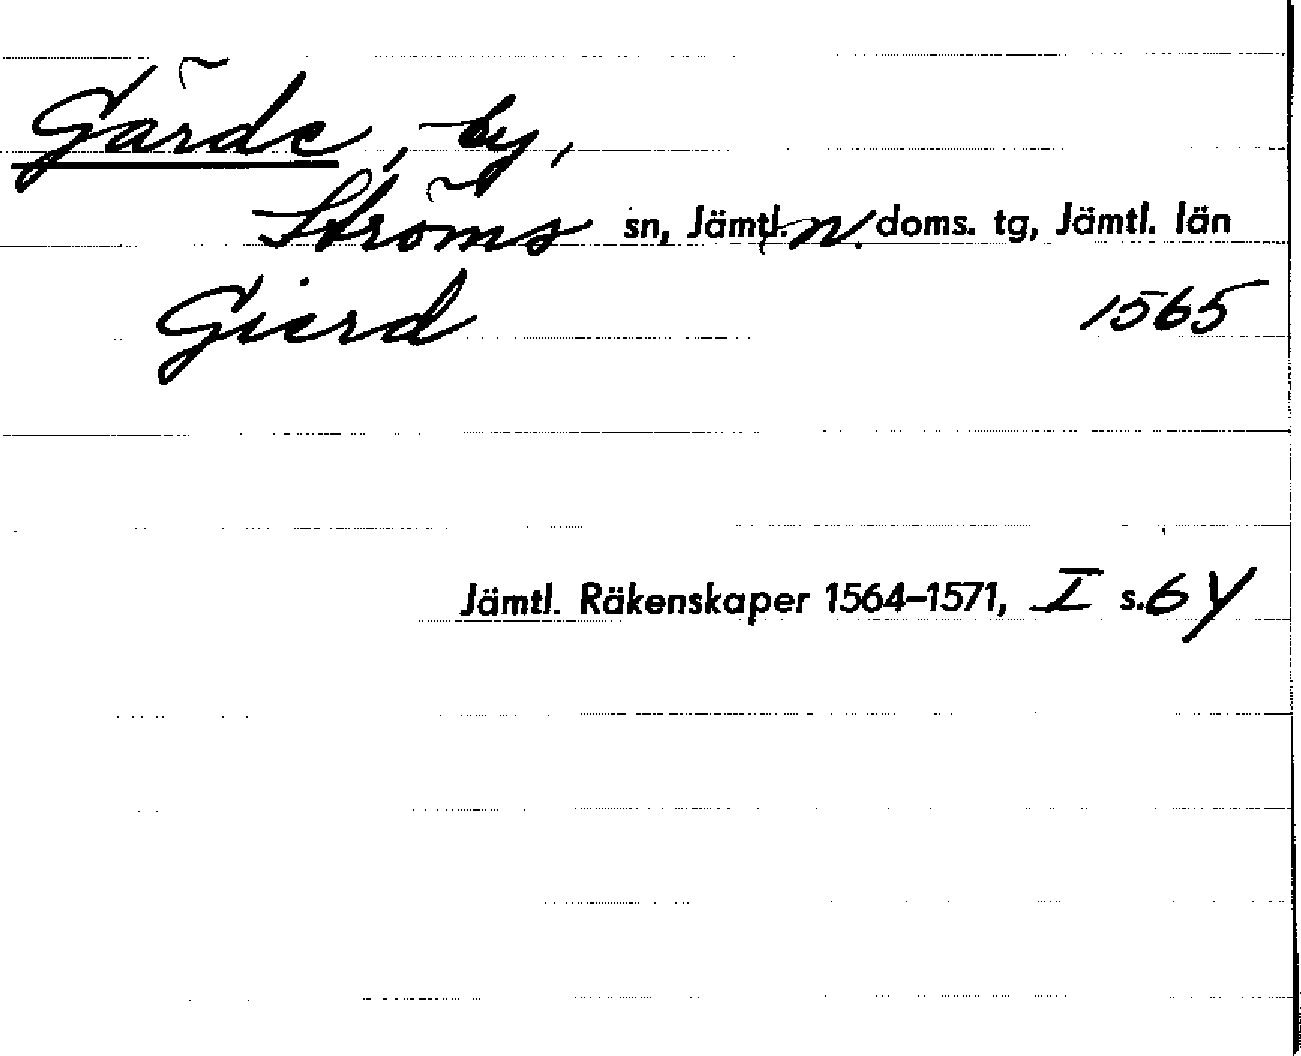 Gärde, by,
Ströms sn, Jämtl. n. doms. tg, Jämtl. län
Gierd 1565
Jämtl. Räkenskaper 1564–1571, I s. 64